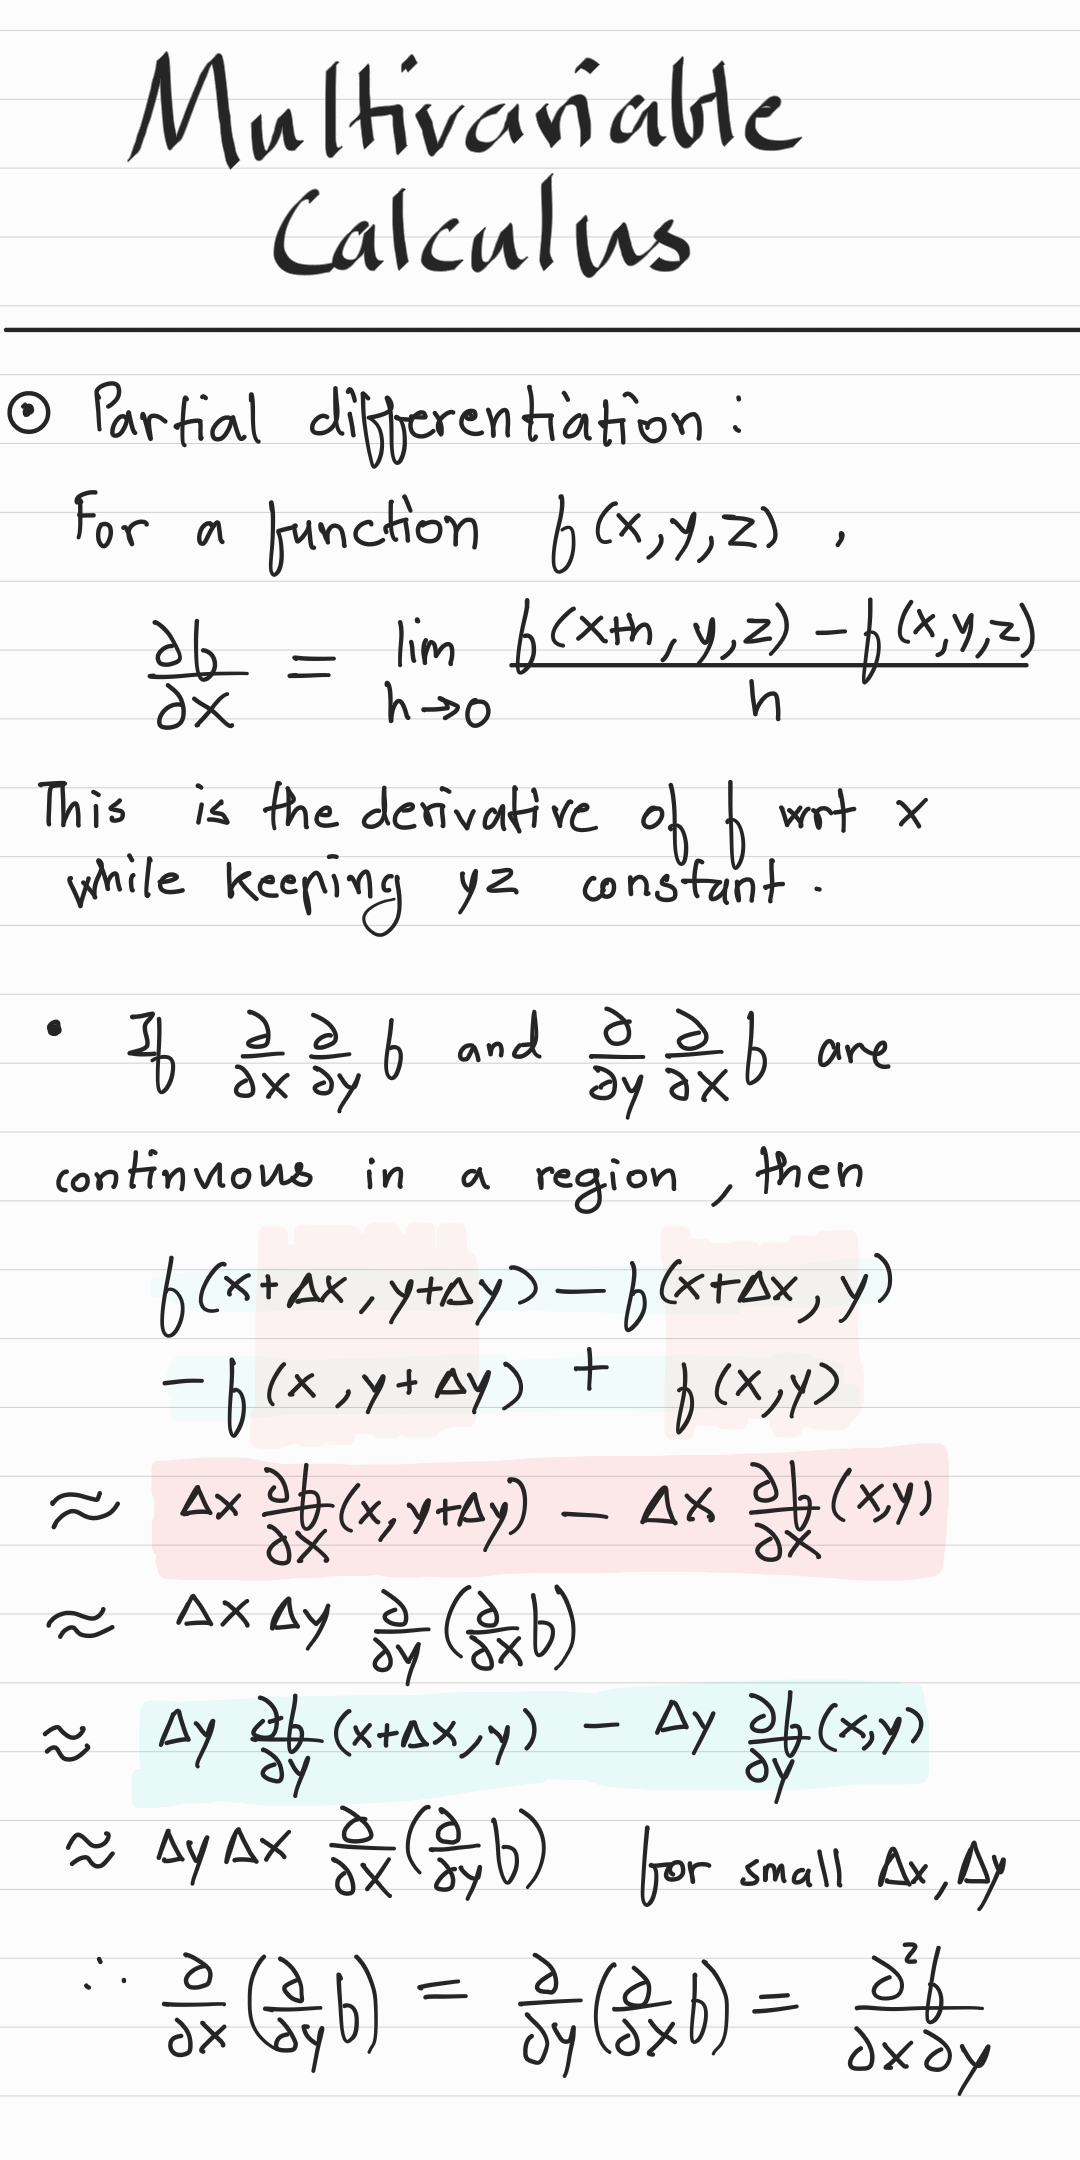 Multivariable
Calculus
⊙ Partial differentiation :
For a function f(x,y,z) ,
∂f/∂x = lim h→0 (f(x+h, y,z) − f(x,y,z))/h
This is the derivative of f wrt x
while keeping yz constant .
• If ∂/∂x ∂/∂y f and ∂/∂y ∂/∂x f are
continuous in a region , then
f(x+Δx, y+Δy) − f(x+Δx, y)
− f(x, y+Δy) + f(x,y)
≈ Δx ∂f/∂x (x, y+Δy) − Δx ∂f/∂x (x,y)
≈ Δx Δy ∂/∂y (∂/∂x f)
≈ Δy ∂f/∂y (x+Δx, y) − Δy ∂f/∂y (x,y)
≈ Δy Δx ∂/∂x (∂/∂y f) for small Δx, Δy
∴ ∂/∂x (∂/∂y f) = ∂/∂y (∂/∂x f) = ∂²f/∂x∂y